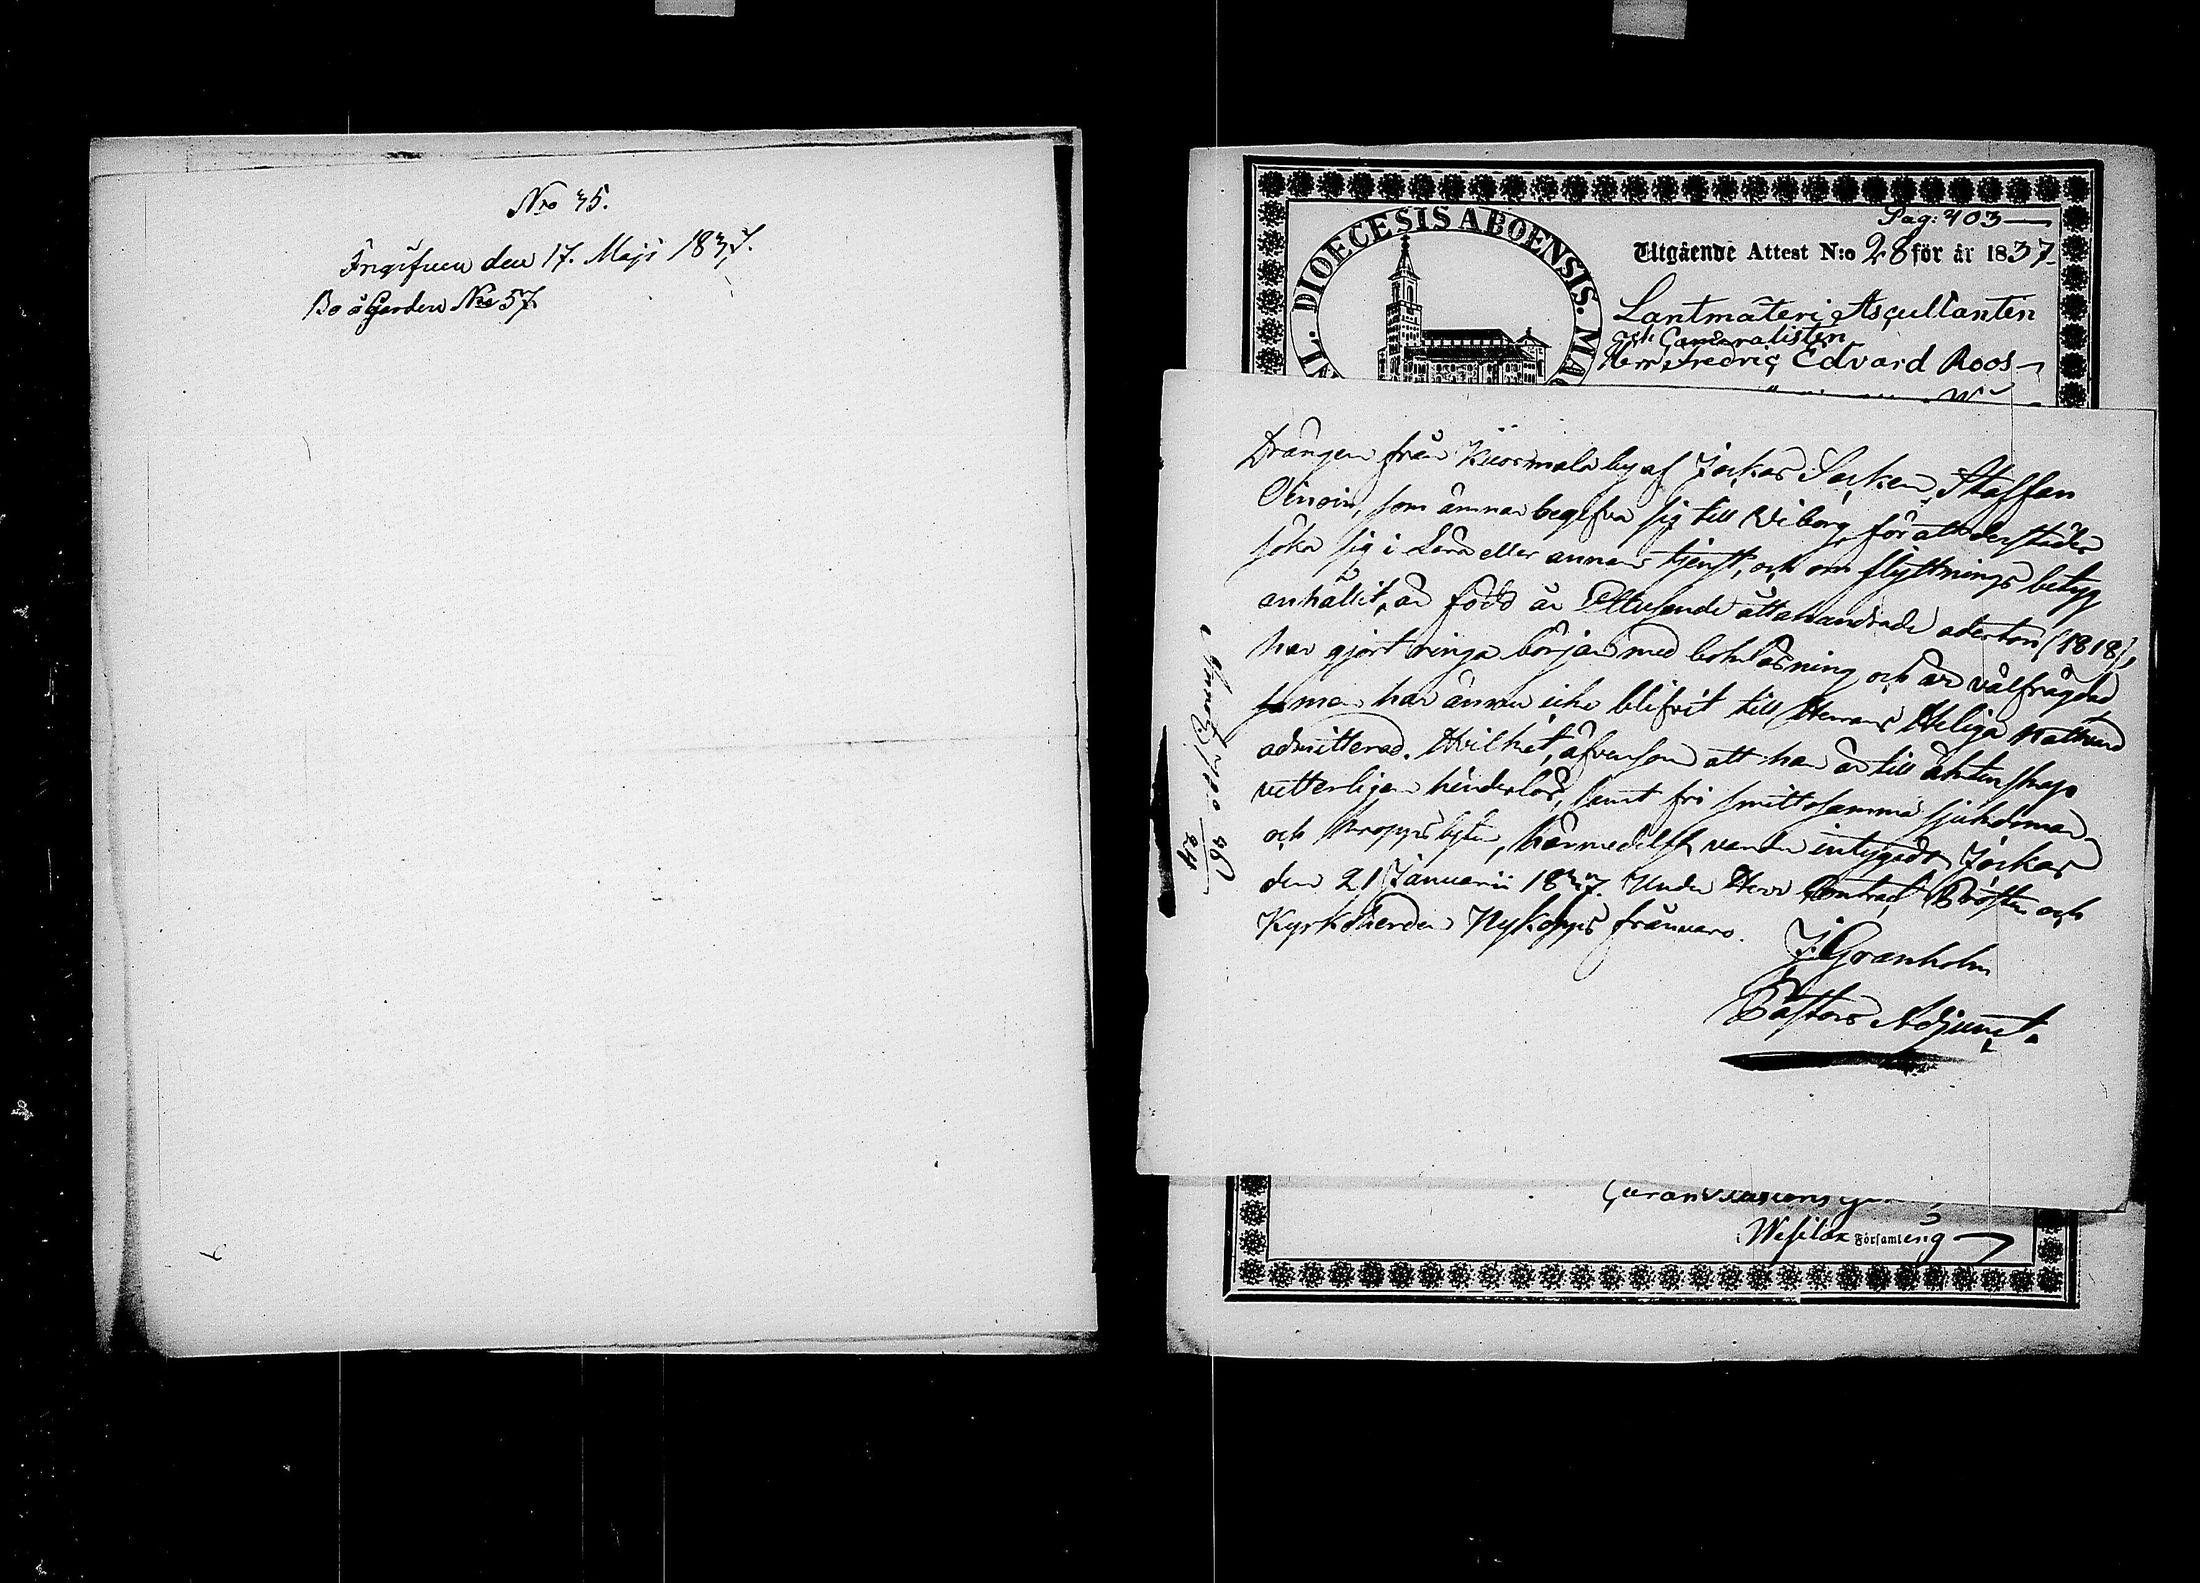 Nro 35.
Ingifven den 17. Maji 1837.
Bo i Garden Nro 57
Pag: 403
DIOECESIS ABOENSIS. MAG
Utgående Attest N:o 28 för år 1837
Lantmäteri Ascultanten
och Cameralisten
Herr Fredric Edvard Roos
Drängen från Kuosmala by af Jockas Socken, Staffan
Oinoin, som ämnar begifva sig till Wiborg, för att derstädes
söka sig i Lära eller annan tjenst, och om flyttnings betyg
anhållit, är född år Ettusende åttahundrade aderton (1818),
har gjort ringa början med bokläsning och är välfrägdad
men har ännu icke blifvit till Herrans Heliga Nattvard
admitterad. Hvilket, äfvensom att han är till äktenskap
vetterligen hinderlös, samt fri smittosamma sjukdomar
och kroppslyten, härmedelst varder intygadt, Jockas
den 21 Januarii 1837. Under Herr Contract Prosten och
Kyrkoherden Nykopps frånvaro.
J. Granholm
Pastors Adjunct.
Annot. pag 96
24
i Wesilax Församling